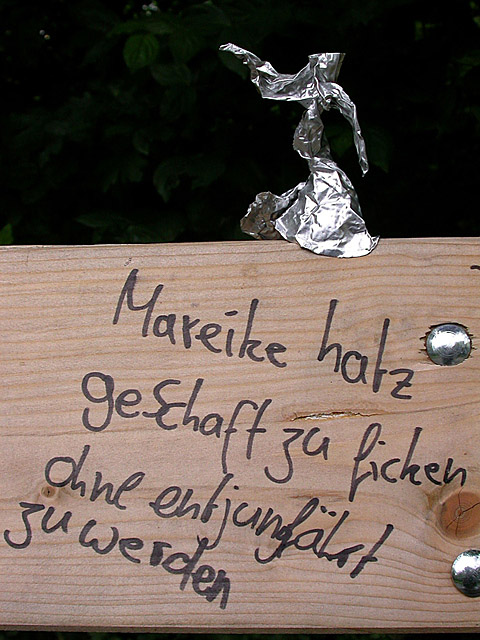 Mareike hatz
geschaft zu ficken
ohne entjungfährt
zu werden